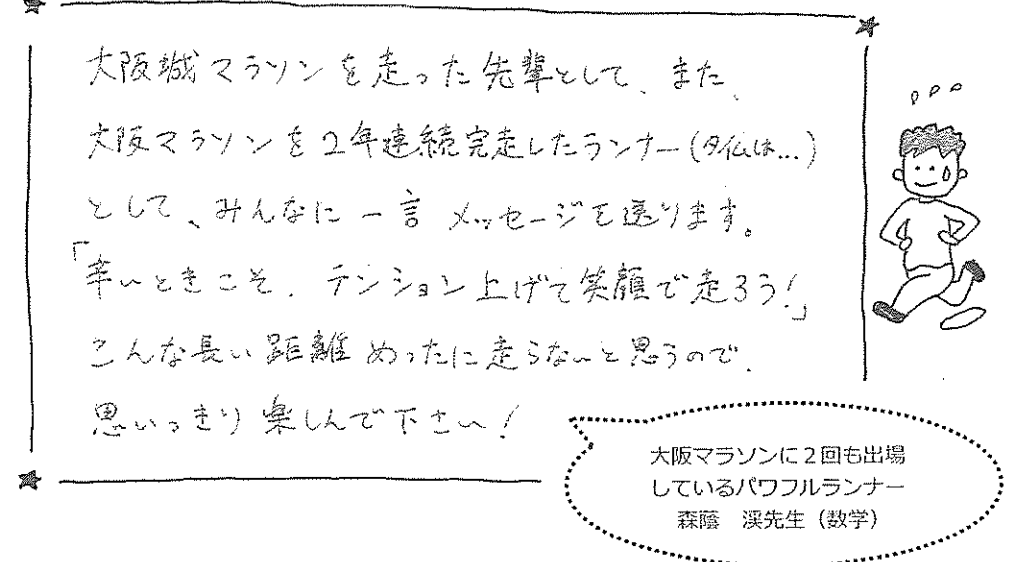 大阪城マラソンを走った先輩として、また、
大阪マラソンを2年連続完走したランナー(タイムは...)
として、みんなに一言メッセージを送ります。
「辛いときこそ、テンション上げて笑顔で走ろう!」
こんな長い距離めったに走らないと思うので、
思いっきり楽しんで下さい!
大阪マラソンに2回も出場
しているパワフルランナー
森蔭 渓先生(数学)